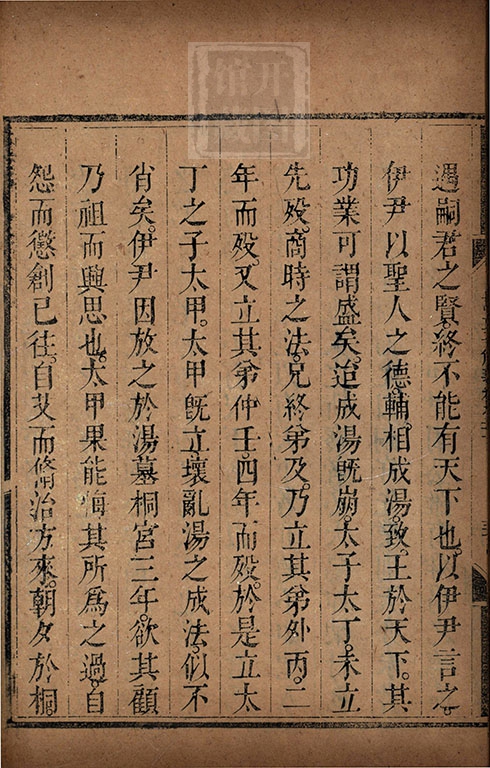 遇嗣君之賢。終不能有天下也。以伊尹言之。
伊尹以聖人之德。輔相成湯。致王於天下。其
功業可謂盛矣。迨成湯既崩。太子太丁。未立
先歿。商時之法。兄終弟及。乃立其弟外丙。二
年而歿。又立其弟仲壬。四年而歿。於是立太
丁之子太甲。太甲既立。壞亂湯之成法。似不
省矣。伊尹因放之於湯墓桐宮三年。欲其顧
乃祖而興思也。太甲果能悔其所為之過。自
怨而懲創已往。自艾而脩治方來。朝夕於桐